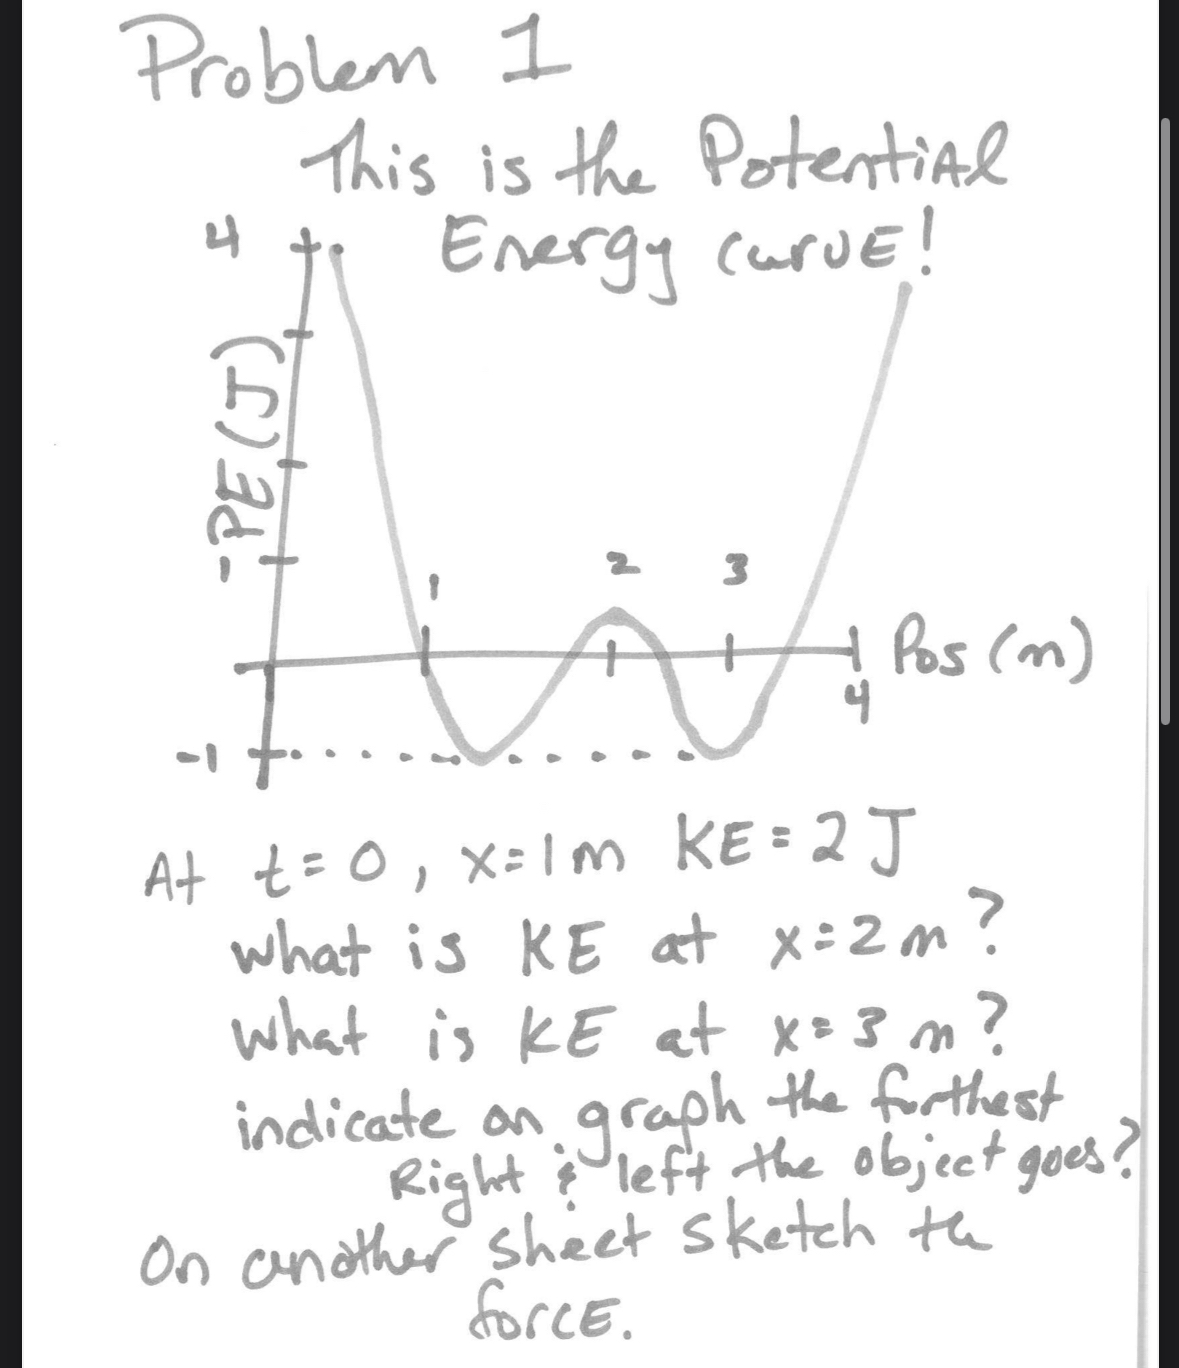 Problem 1
This is the Potential
Energy curve!
4
PE (J)
1
1
2
3
Pos (m)
4
-1
At t=0, x=1m KE=2J
what is KE at x=2m?
What is KE at x=3m?
indicate on graph the furthest
Right & left the object goes?
On another sheet sketch the
force.